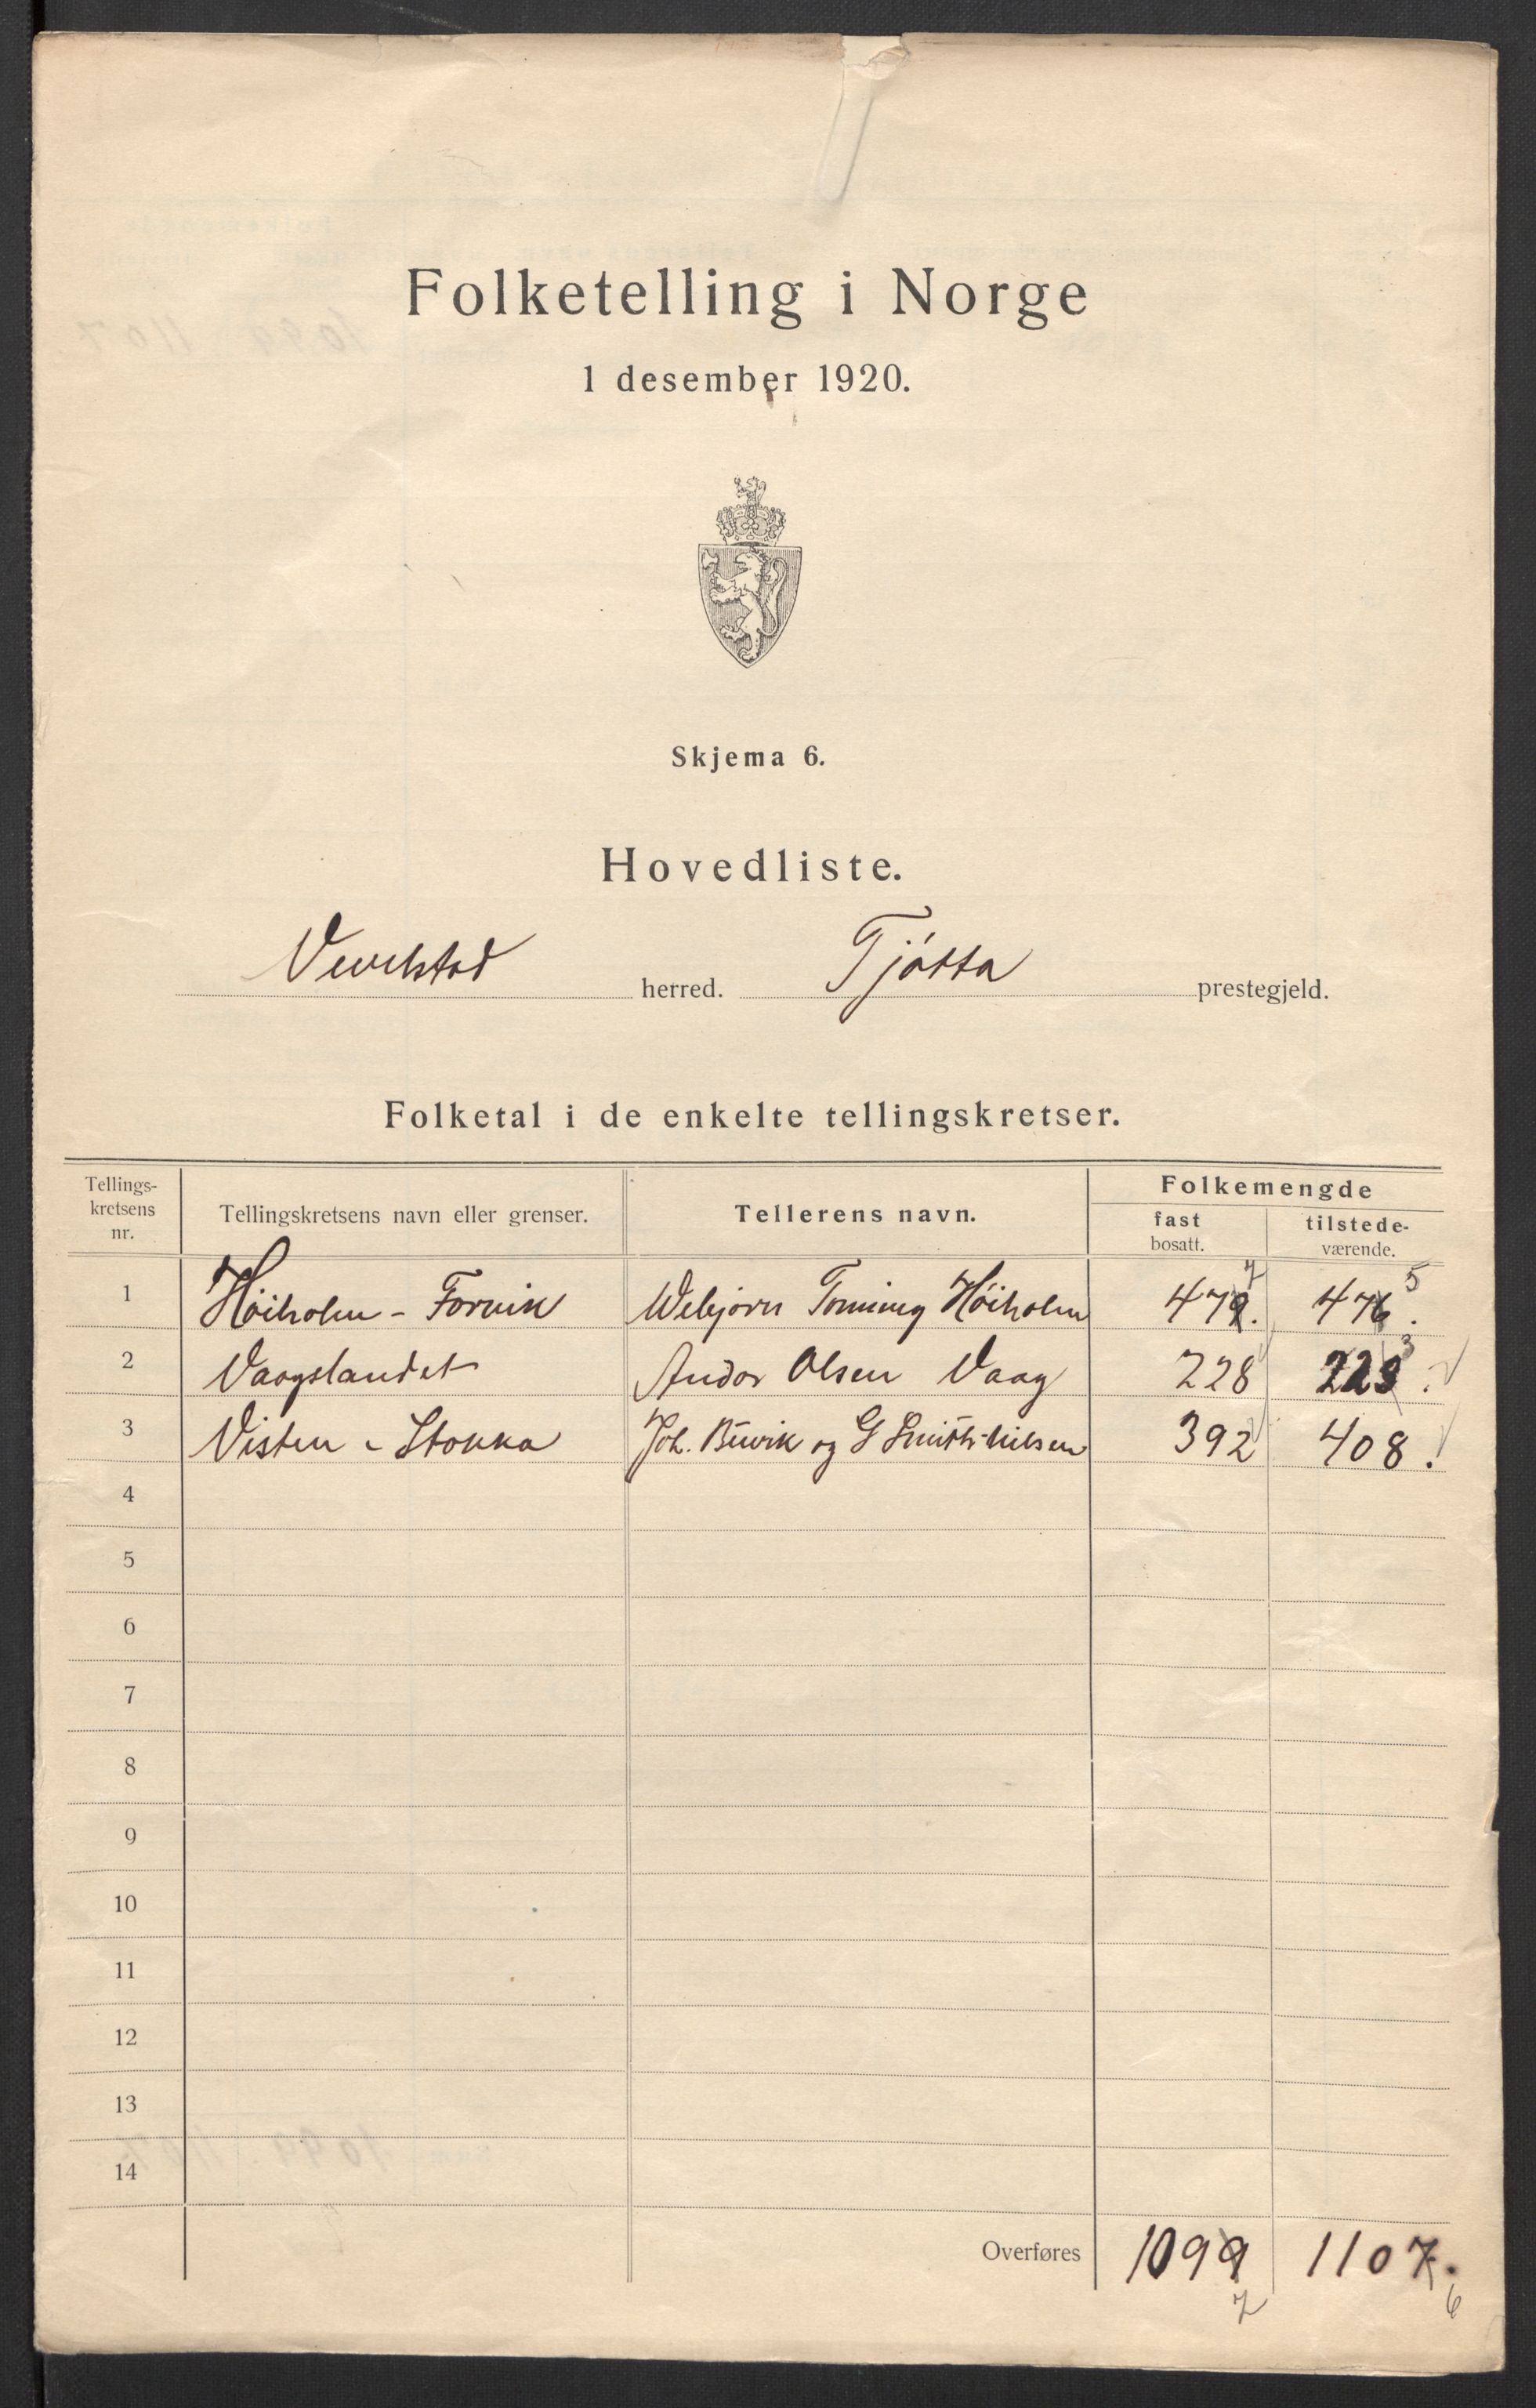 Folketelling i Norge
1 desember 1920.
Skjema 6.
Hovedliste.
Vevelstad herred. Tjøtta prestegjeld.
Folketal i de enkelte tellingskretser.
Tellings-
kretsens
nr.
Tellingskretsens navn eller grenser.
Tellerens navn.
Folkemengde
fast
bosatt.
tilstede-
værende.
7 5
1 Höiholm - Forvik Webjörn Tonning Höiholm 479. 476.
3
2 Vaagslandet Andor Olsen Vaag 228 223.
3 Visten - Stokka Joh. Buvik og G Smith-Nilsen 392 408.
4
5
6
7
8
9
10
11
12
13
14
Overføres 1099 1107.
7 6